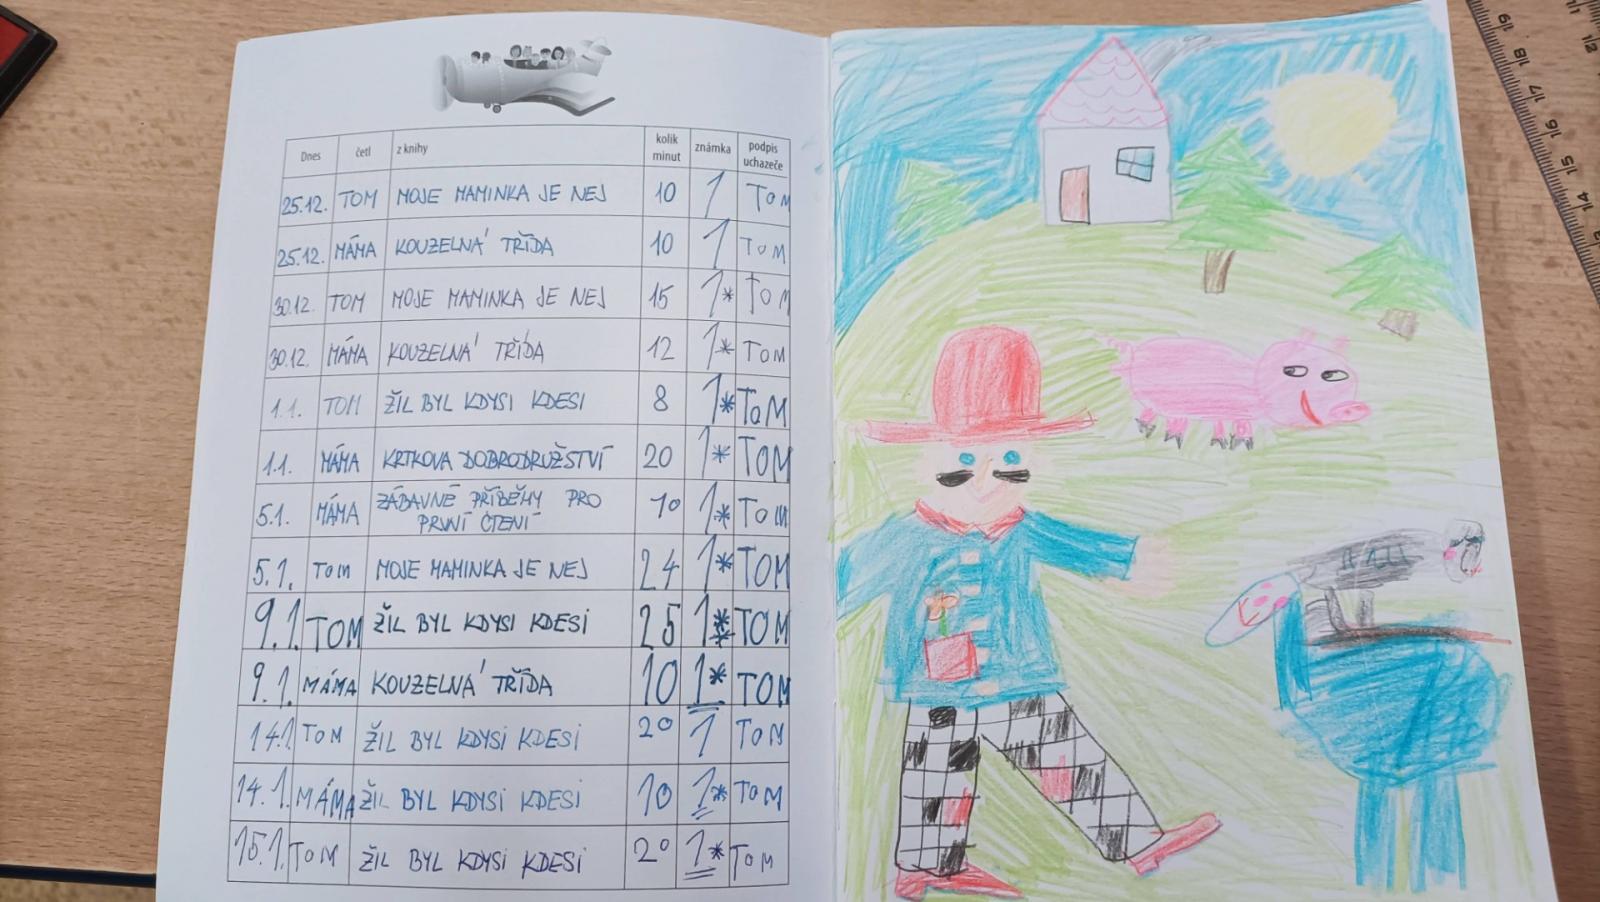 Dnes četl z knihy kolik minut známka podpis uchazeče
25.12. TOM MOJE MAMINKA JE NEJ 10 1 TOM
25.12. MÁMA KOUZELNÁ TŘÍDA 10 1 TOM
30.12. TOM MOJE MAMINKA JE NEJ 15 1* TOM
30.12. MÁMA KOUZELNÁ TŘÍDA 12 1* TOM
1.1. TOM ŽIL BYL KDYSI KDESI 8 1* TOM
1.1. MÁMA KRTKOVA DOBRODRUŽSTVÍ 20 1* TOM
5.1. MÁMA ZÁBAVNÉ PŘÍBĚHY PRO PRVNÍ ČTENÍ 10 1* TOM
5.1. TOM MOJE MAMINKA JE NEJ 24 1* TOM
9.1. TOM ŽIL BYL KDYSI KDESI 25 1** TOM
9.1. MÁMA KOUZELNÁ TŘÍDA 10 1* TOM
14.1. TOM ŽIL BYL KDYSI KDESI 20 1 TOM
14.1. MÁMA ŽIL BYL KDYSI KDESI 10 1* TOM
15.1. TOM ŽIL BYL KDYSI KDESI 20 1* TOM
19 18 17 16 15 14